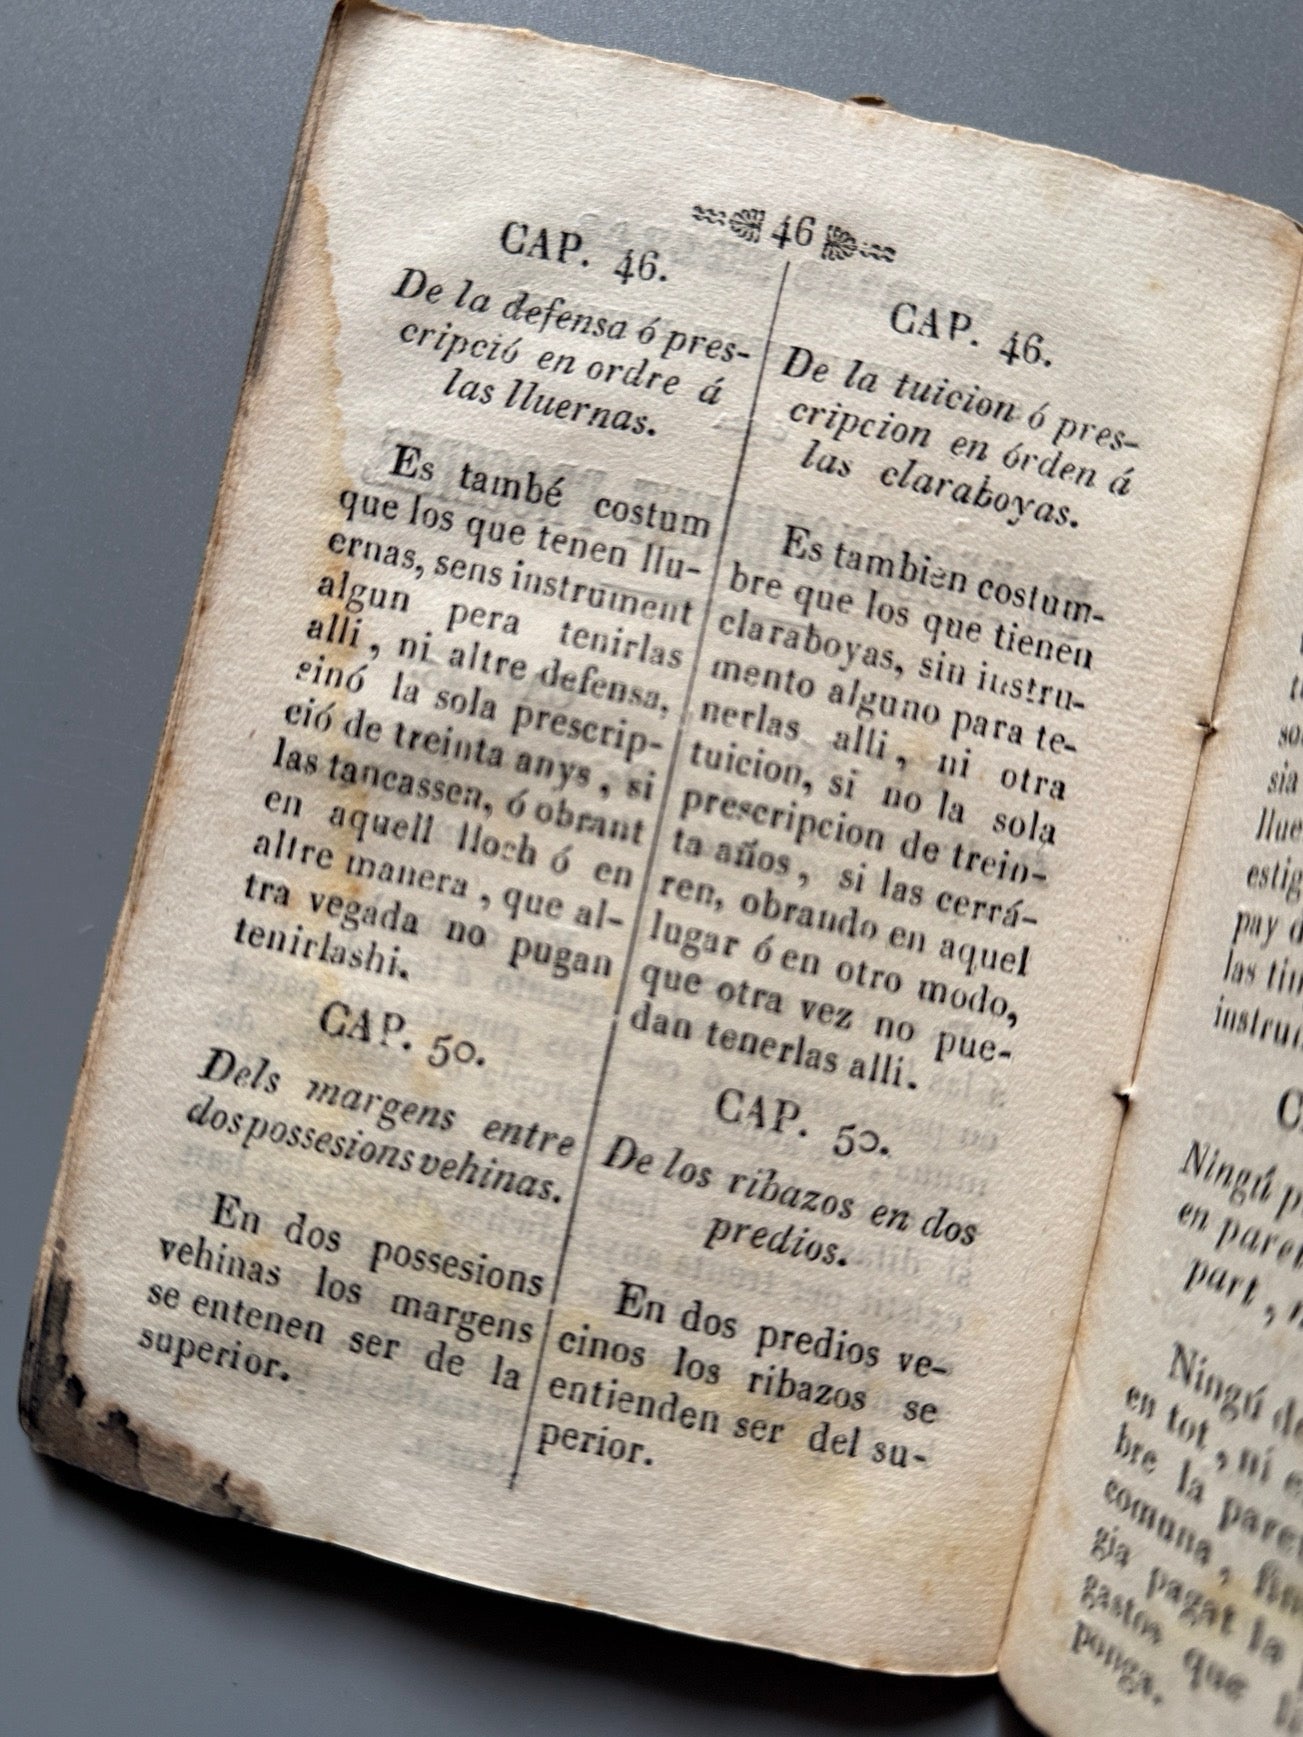 46
CAP. 46.
De la defensa ó pres-
cripció en ordre á
las lluernas.
Es també costum
que los que tenen llu-
ernas, sens instrument
algun pera tenirlas
alli, ni altre defensa,
sinó la sola prescrip-
ció de treinta anys, si
las tancassen, ó obrant
en aquell lloch ó en
altre manera, que al-
tra vegada no pugan
tenirlashi.
CAP. 50.
Dels margens entre
dos possesions vehinas.
En dos possesions
vehinas los margens
se entenen ser de la
superior.
CAP. 46.
De la tuicion ó pres-
cripcion en órden á
las claraboyas.
Es tambien costum-
bre que los que tienen
claraboyas, sin instru-
mento alguno para te-
nerlas alli, ni otra
tuicion, si no la sola
prescripcion de trein-
ta años, si las cerrá-
ren, obrando en aquel
lugar ó en otro modo,
que otra vez no pue-
dan tenerlas alli.
CAP. 50.
De los ribazos en dos
predios.
En dos predios ve-
cinos los ribazos se
entienden ser del su-
perior.
sia
llue
estig
pay d
las tin
instru
C
Ningú p
en paret
part, n
Ningú de
en tot, ni e
bre la paret
comuna, fin
gia pagat la
gastos que
ponga.